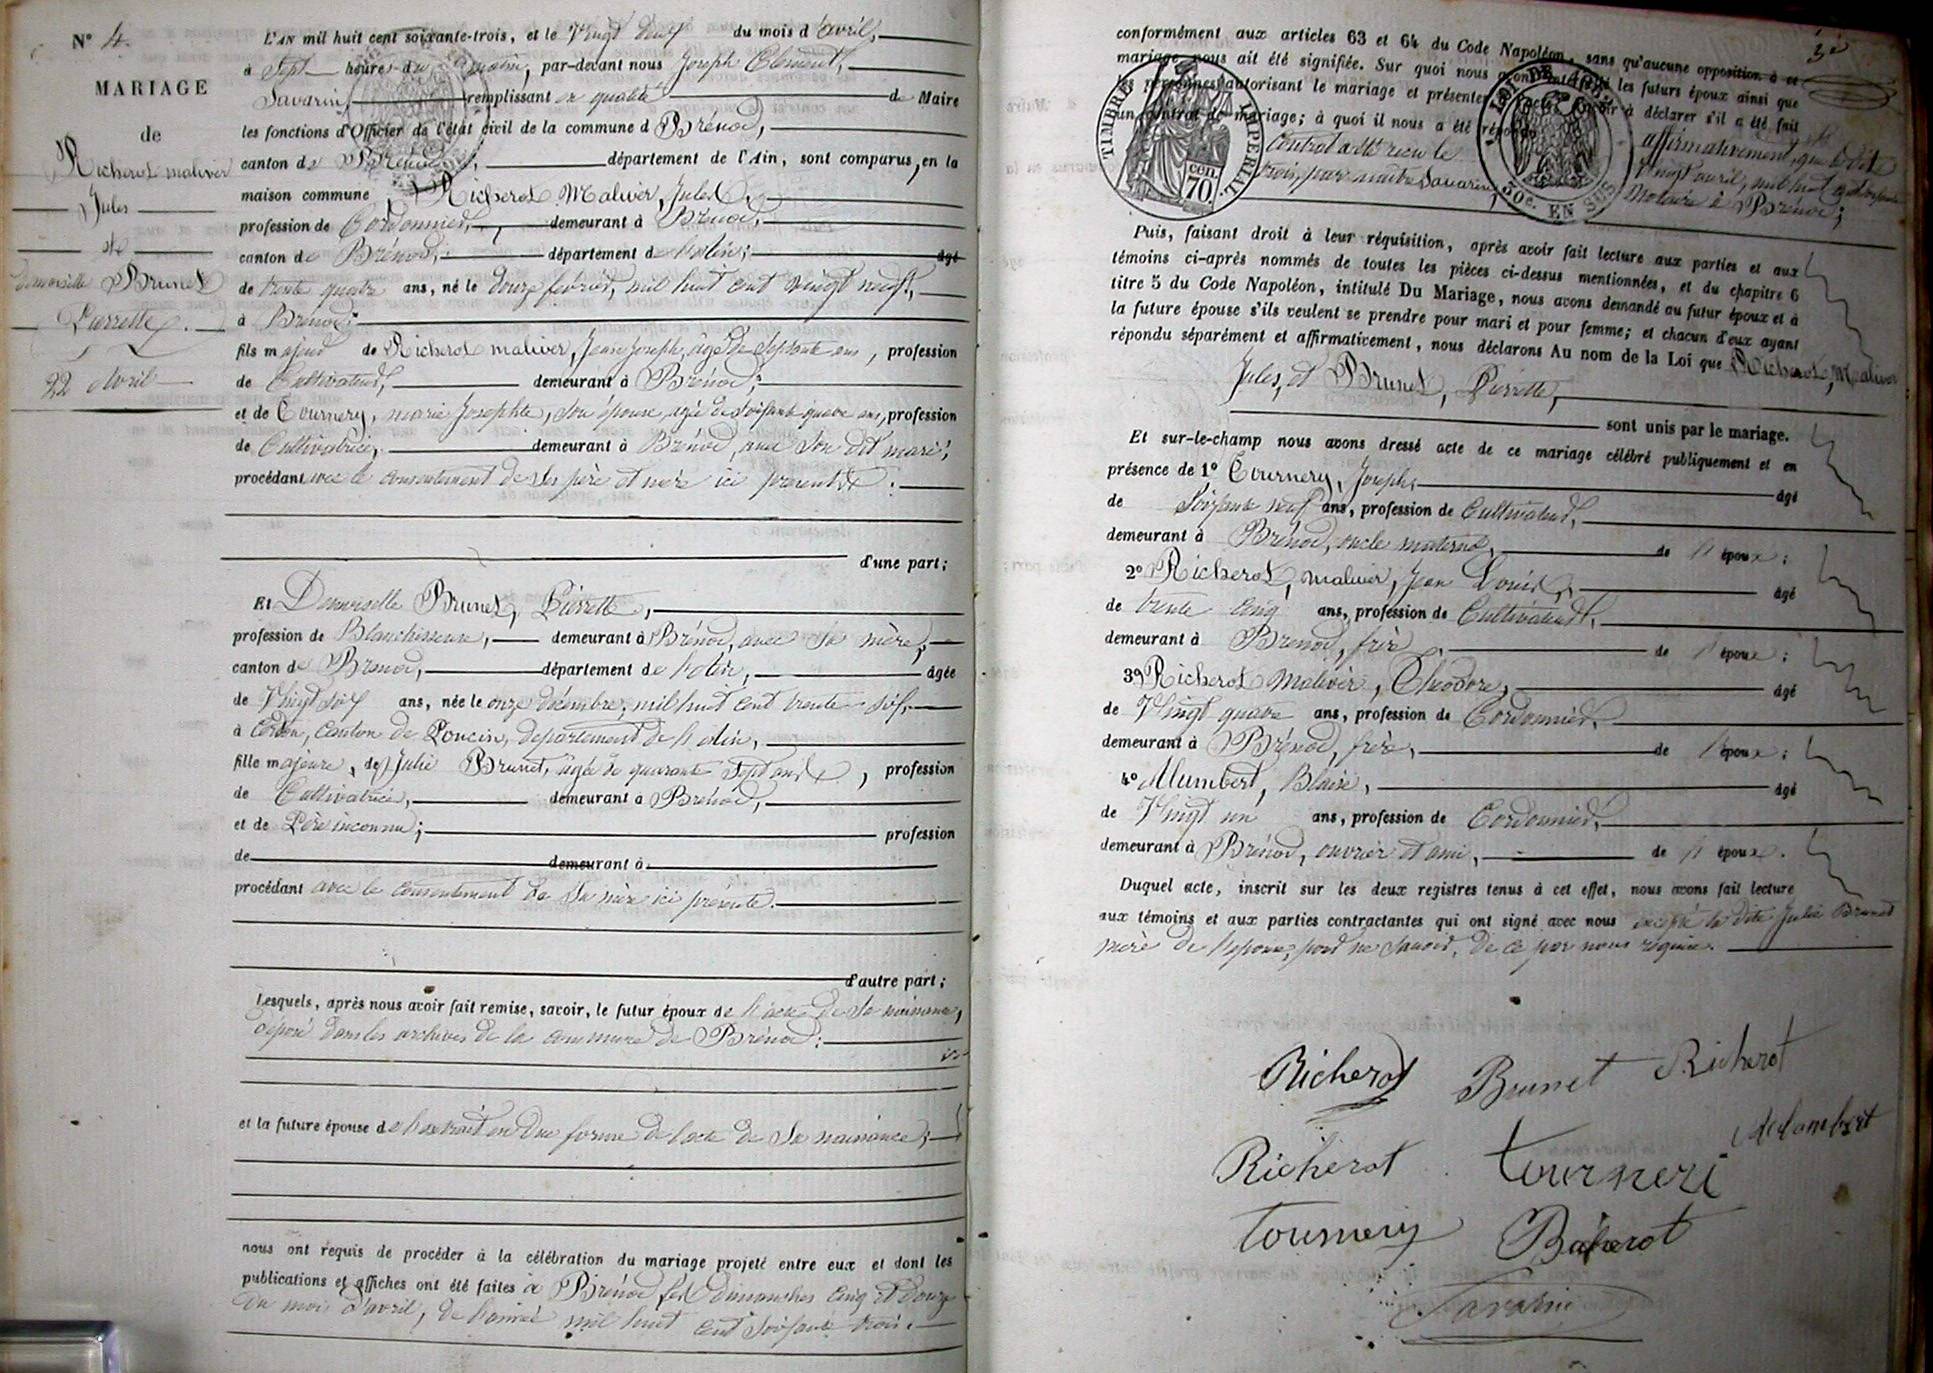 N° 4.
MARIAGE
de
Richerot malivér
Jules
et
demoiselle Brunet
Pierrette.
22 Avril
L'AN mil huit cent soixante-trois, et le Vingt deux du mois d'avril,
à Sept heures du matin, par-devant nous Joseph Clément,
Savarin, remplissant en qualité de Maire
les fonctions d'Officier de l'état civil de la commune d Brénod,
canton de Brénod, département de l'Ain, sont comparus, en la
maison commune, Richerot Malivér, Jules,
profession de Cordonnier, demeurant à Brénod,
canton de Brénod, département de l'Ain, âgé
de trente quatre ans, né le douze février, mil huit cent vingt neuf,
à Brénod;
fils majeur de Richerot malivér, Jean Joseph, âgé de Septante ans, profession
de Cultivateur, demeurant à Brénod;
et de Tournery, marie Josephte, son épouse agée de soixante quatre ans, profession
de Cultivatrice, demeurant à Brénod, avec son dit mari;
procédant avec le consentement de ses père et mère ici présents.
d'une part;
Et Demoiselle Brunet, Pierrette,
profession de Blanchisseuse, demeurant à Brénod, avec sa mère,
canton de Brénod, département de l'Ain, âgée
de Vingt six ans, née le onze décembre, mil huit cent trente six,
à Cerdon, Canton de Poncin, département de l'Ain,
fille majeure, de Julie Brunet, agée de quarante sept ans, profession
de Cultivatrice, demeurant à Brénod,
et de Père inconnu; profession
de demeurant à
procédant avec le consentement de sa mère ici présente.
d'autre part;
Lesquels, après nous avoir fait remise, savoir, le futur époux de l'acte de sa naissance,
déposé dans les archives de la commune de Brénod;
et la future épouse de l'extrait en due forme de l'acte de sa naissance;
nous ont requis de procéder à la célébration du mariage projeté entre eux et dont les
publications et affiches ont été faites à Brénod les dimanches cinq et douze
du mois d'avril, de l'année mil huit cent soixante trois.
3e
conformément aux articles 63 et 64 du Code Napoléon, sans qu'aucune opposition à ce
mariage nous ait été signifiée. Sur quoi nous avons interpellé les futurs époux ainsi que
les personnes autorisant le mariage et présentes à l'acte, d'avoir à déclarer s'il a été fait
un contrat de mariage; à quoi il nous a été répondu affirmativement, que le dit
Contrat a été reçu le Vingt avril, mil huit cent soixante
trois, par maître Savarin, Notaire à Brénod;
TIMBRE IMPERIAL
CEN. 70.
50c. EN SUS
Puis, faisant droit à leur réquisition, après avoir fait lecture aux parties et aux
témoins ci-après nommés de toutes les pièces ci-dessus mentionnées, et du chapitre 6
titre 5 du Code Napoléon, intitulé Du Mariage, nous avons demandé au futur époux et à
la future épouse s'ils veulent se prendre pour mari et pour femme; et chacun d'eux ayant
répondu séparément et affirmativement, nous déclarons Au nom de la Loi que Richerot, Malivér
Jules, et Brunet, Pierrette,
sont unis par le mariage.
Et sur-le-champ nous avons dressé acte de ce mariage célébré publiquement et en
présence de 1° Tournery, Joseph, âgé
de Soixante neuf ans, profession de Cultivateur,
demeurant à Brénod, oncle maternel, de l'époux;
2° Richerot, malivér, Jean Louis, âgé
de trente cinq ans, profession de Cultivateur,
demeurant à Brénod, frère, de l'époux;
3° Richerot Malivér, Théodore, âgé
de Vingt quatre ans, profession de Cordonnier,
demeurant à Brénod, frère, de l'époux;
4° Alumbert, Blaise, âgé
de Vingt un ans, profession de Cordonnier,
demeurant à Brénod, ouvrier et ami, de l'époux.
Duquel acte, inscrit sur les deux registres tenus à cet effet, nous avons fait lecture
aux témoins et aux parties contractantes qui ont signé avec nous excepté la dite Julie Brunet
mère de l'épouse, pour ne savoir, de ce par nous requise.
Richerot Brunet Richerot
Richerot tourneri
Tournery Richerot
Savarin